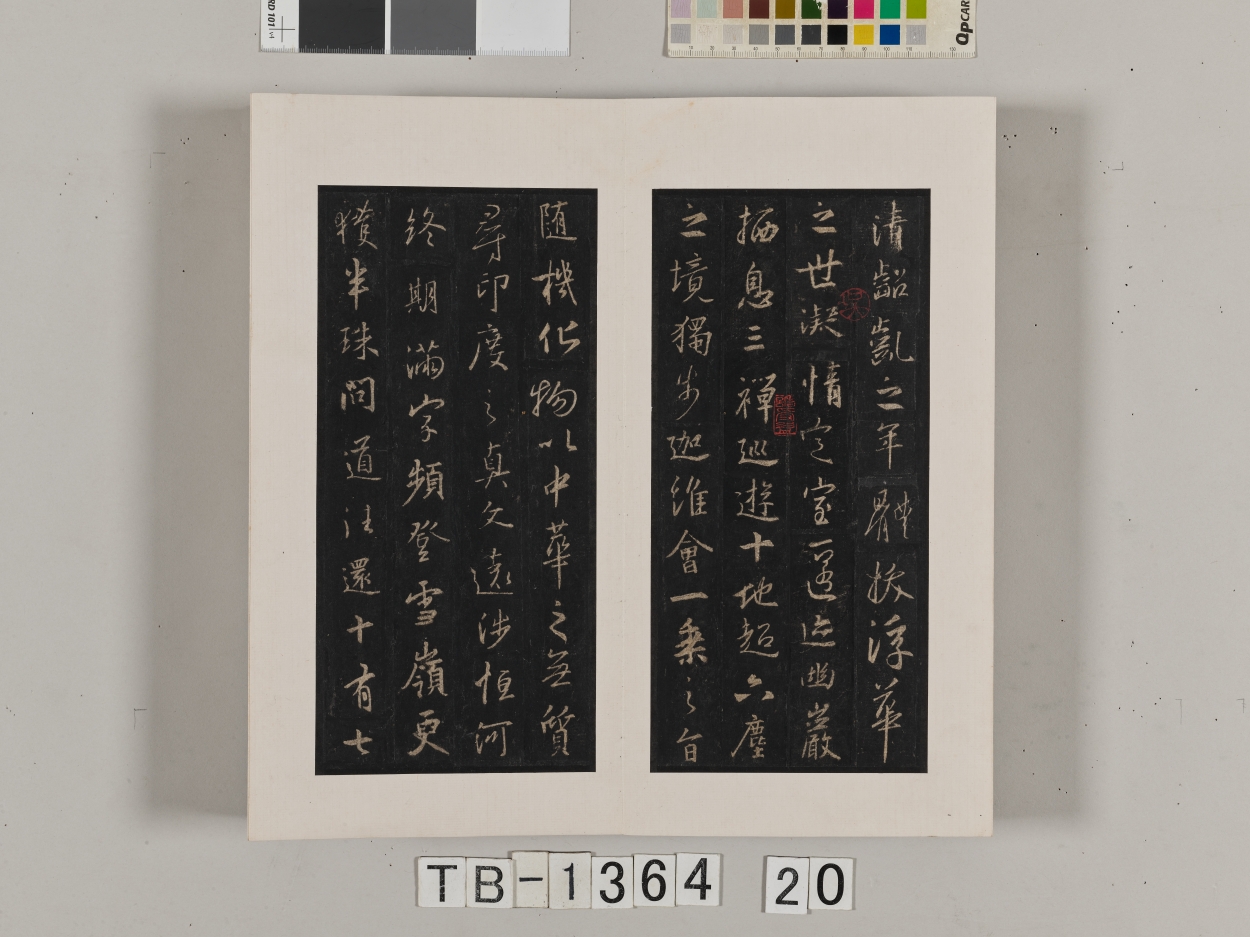 清齠齔之年體拔浮華
之世凝情定室匿迹幽巖
栖息三禪巡遊十地超六塵
之境獨步迦維會一乘之旨
随機化物以中華之無質
尋印度之真文遠涉恒河
終期滿字頻登雪嶺更
獲半珠問道法還十有七
TB-1364 20
QPCARD 101 v3
QPCARD